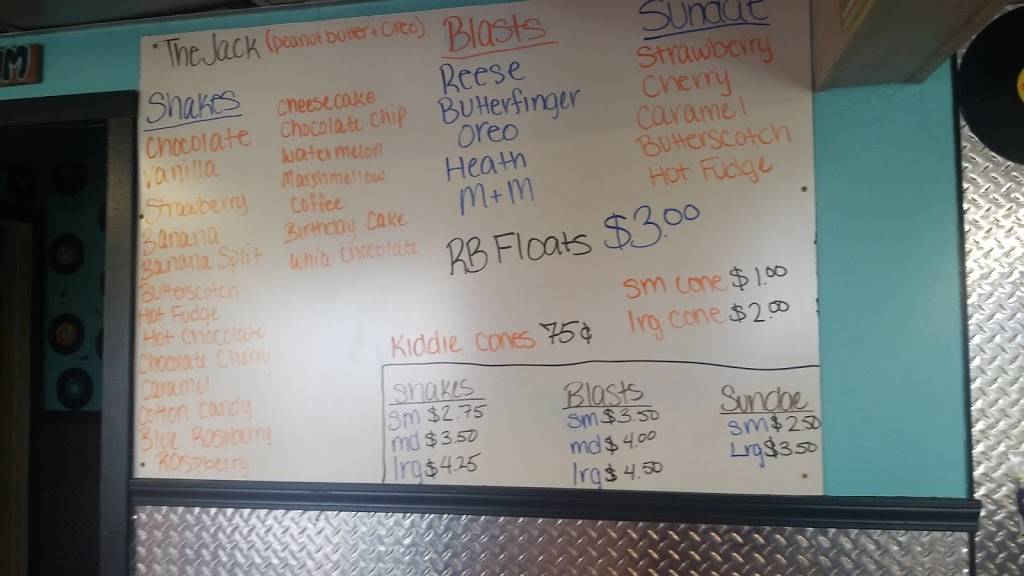 M
The Jack (peanut butter + Oreo)
Shakes
Chocolate
Vanilla
Strawberry
Banana
Banana Split
Butterscotch
Hot Fudge
Hot Chocolate
Chocolate Cherry
Caramel
Cotton Candy
Blue Raspberry
Raspberry
Cheesecake
Chocolate Chip
Watermelon
Marshmellow
Coffee
Birthday Cake
Whia Chocolate
Blasts
Reese
Butterfinger
Oreo
Heath
M+M
Sundae
Strawberry
Cherry
Caramel
Butterscotch
Hot Fudge
RB Floats $3.00
Sm Cone $1.00
lrg cone $2.00
Kiddie cones 75¢
Shakes
sm $2.75
md $3.50
lrg $4.25
Blasts
sm $3.50
md $4.00
lrg $4.50
Sundae
sm $2.50
Lrg $3.50